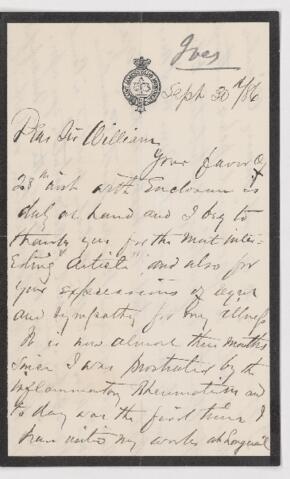 Ives
Sept 30th/86
Dear Sir William
Your favor of
28th inst with Enclosure is
duly at hand and I beg to
thank you for the most inter-
Esting Article and also for
your expressions of regret
and sympathy for my illness
It is now almost three months
since I was prostrated by the
inflammatory Rheumatism and
to day was the first time I
have visited my works at Longueuil